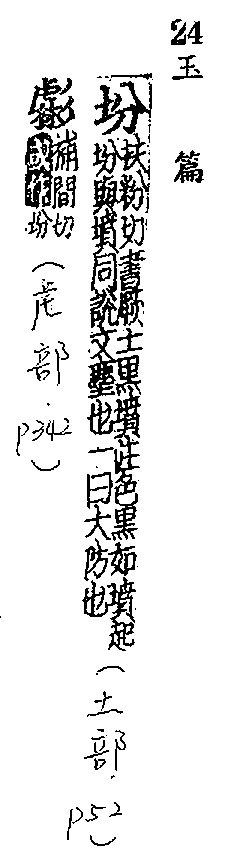 24 玉篇
坋 扶粉切書厥土黑墳注色黑如墳起
坋與墳同說文塵也一曰大防也 (土部. p52)
虨 補間切
作坋 (虎部. p342)